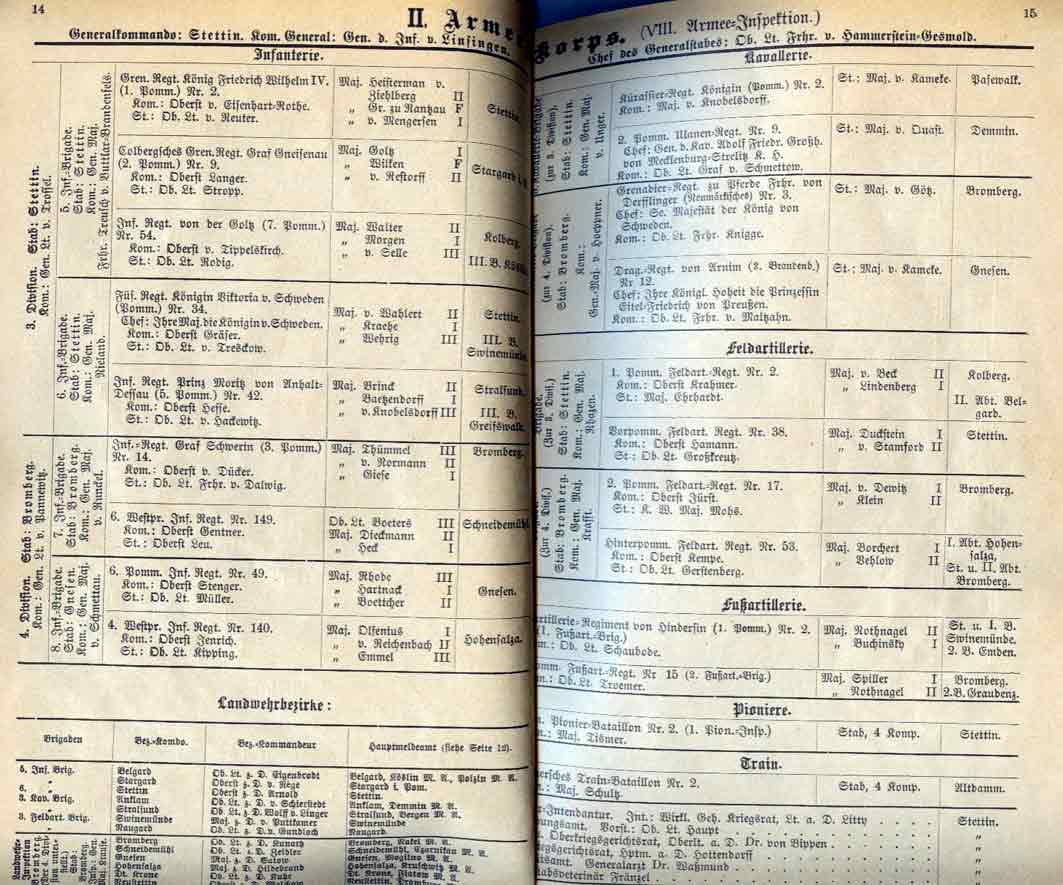 14
II. Armee
Generalkommando: Stettin. Kom. General: Gen. d. Inf. v. Linsingen.
Infanterie.
3. Division. Stab: Stettin.
Kom.: Gen. Lt. v. Trossel.
5. Inf.-Brigade.
Stab: Stettin.
Kom.: Gen. Maj.
Frhr. Treusch v. Buttlar-Brandenfels.
Gren. Regt. König Friedrich Wilhelm IV. Maj. Heisterman v.
(1. Pomm.) Nr. 2. Ziehlberg II Stettin.
Kom.: Oberst v. Eisenhart-Rothe. „ Gr. zu Rantzau F
St.: Ob. Lt. v. Reuter. „ v. Mengersen I
Colbergsches Gren. Regt. Graf Gneisenau Maj. Goltz I
(2. Pomm.) Nr. 9. „ Wilken F Stargard i.
Kom.: Oberst Langer. „ v. Restorff II
St.: Ob. Lt. Stropp.
Inf. Regt. von der Goltz (7. Pomm.) Maj. Walter II
Nr. 54. „ Morgen I Kolberg.
Kom.: Oberst v. Tippelskirch. „ v. Selle III III. B.
St.: Ob. Lt. Rodig.
6. Inf.-Brigade.
Stab: Stettin.
Kom.: Gen. Maj.
Rieland.
Füs. Regt. Königin Viktoria v. Schweden
(Pomm.) Nr. 34. Maj. v. Wahlert II Stettin.
Chef: Ihre Maj. die Königin v. Schweden. „ Kraehe I
Kom.: Oberst Gräser. „ Wehrig III III. B.
St.: Ob. Lt. v. Tresckow. Swinemünde.
Inf. Regt. Prinz Moritz von Anhalt- Maj. Brinck II Stralsund.
Dessau (5. Pomm.) Nr. 42. „ Baetzendorff I
Kom.: Oberst Hesse. „ v. Knobelsdorff III III. B.
St.: Ob. Lt. v. Hackewitz. Greifswald.
4. Division. Stab: Bromberg.
Kom.: Gen. Lt. v. Pannewitz.
7. Inf.-Brigade.
Stab: Bromberg.
Kom.: Gen. Maj.
v. Runckel.
Inf.-Regt. Graf Schwerin (3. Pomm.) Maj. Thümmel III Bromberg.
Nr. 14. „ v. Normann II
Kom.: Oberst v. Dücker. „ Giese I
St.: Ob. Lt. Frhr. v. Dalwig.
6. Westpr. Inf. Regt. Nr. 149. Ob. Lt. Boeters III Schneidemühl
Kom.: Oberst Gentner. Maj. Dieckmann II
St.: Oberst Leu. „ Heck I
8. Inf.-Brigade.
Stab: Gnesen.
Kom.: Gen. Maj.
v. Schmettau.
6. Pomm. Inf. Regt. Nr. 49. Maj. Rhode III
Kom.: Oberst Stenger. „ Hartnack I Gnesen.
St.: Ob. Lt. Müller. „ Boetticher II
4. Westpr. Inf. Regt. Nr. 140. Maj. Olsenius I
Kom.: Oberst Jenrich. „ v. Reichenbach II Hohensalza.
St.: Ob. Lt. Kipping. „ Emmel III
Landwehrbezirke:
Brigaden Bez.-Komdo. Bez.-Kommandeur Hauptmeldeamt (siehe Seite 12).
5. Inf. Brig. Belgard Ob. Lt. z. D. Eigenbrodt Belgard, Köslin M. A., Polzin M. A.
„ Stargard Oberst z. D. v. Rège Stargard i. Pom.
6. „ Stettin Oberst z. D. Arnold Stettin.
3. Kav. Brig. Anklam Ob. Lt. z. D. v. Schierstedt Anklam, Demmin M. A.
„ Stralsund Ob. Lt. z. D. Wolff v. Linger Stralsund, Bergen M. A.
3. Feldart. Brig. Swinemünde Maj. z. D. v. Puttkamer Swinemünde
„ Naugard Ob. Lt. z. D. v. Gundlach Naugard.
Bromberg Ob. Lt. z. D. Kunath Bromberg, Nakel M. A.
Schneidemühl Ob. Lt. z. D. Schneidemühl, Czarnikau M. A.
Gnesen Maj. z. D. Gnesen, Mogilno M. A.
Hohensalza Maj. z. D. Hildebrand Hohensalza, Kruschwitz M. A.
Dt. Krone Ob. Lt. z. D. Dt. Krone, Flatow M. A.
Neustettin Neustettin,
15
Korps. (VIII. Armee-Inspektion.)
Chef des Generalstabes: Ob. Lt. Frhr. v. Hammerstein-Gesmold.
Kavallerie.
(zur 3. Division).
Stab: Stettin.
Kom.: Gen. Maj.
v. Unger.
Kürassier-Regt. Königin (Pomm.) Nr. 2. St.: Maj. v. Kameke. Pasewalk.
Kom.: Maj. v. Knobelsdorff.
2. Pomm. Ulanen-Regt. Nr. 9. St.: Maj. v. Quast. Demmin.
Chef: Gen. d. Kav. Adolf Friedr. Großh.
von Mecklenburg-Strelitz K. H.
Kom.: Ob. Lt. Graf v. Schmettow.
(zur 4. Division).
Stab: Bromberg.
Kom.:
Gen.-Maj. v. Hoeppner.
Grenadier-Regt. zu Pferde Frhr. von St.: Maj. v. Götz. Bromberg.
Derfflinger (Neumärkisches) Nr. 3.
Chef: Se. Majestät der König von
Schweden.
Kom.: Ob. Lt. Frhr. Knigge.
Drag.-Regt. von Arnim (2. Brandenb.) St.: Maj. v. Kameke. Gnesen.
Nr 12.
Chef: Ihre Königl. Hoheit die Prinzessin
Eitel-Friedrich von Preußen.
Kom.: Ob. Lt. Frhr. v. Maltzahn.
Feldartillerie.
Brigade.
(Zur 3. Divis.)
Stab: Stettin.
Kom.: Gen. Maj.
Rhazen.
1. Pomm. Feldart.-Regt. Nr. 2. Maj. v. Beck II Kolberg.
Kom.: Oberst Krahmer. „ Lindenberg I
St.: Maj. Ehrhardt. II. Abt. Bel-
gard.
Vorpomm. Feldart. Regt. Nr. 38. Maj. Duckstein I Stettin.
Kom.: Oberst Hamann. „ v. Stamford II
St.: Ob. Lt. Großkreutz.
(Zur 4. Divis.)
Stab: Bromberg.
Kom.: Gen. Maj.
Krafft.
2. Pomm. Feldart.-Regt. Nr. 17. Maj. v. Dewitz I Bromberg.
Kom.: Oberst Fürst. „ Klein II
St.: K. W. Maj. Mohs.
Hinterpomm. Feldart. Regt. Nr. 53. Maj. Borchert I I. Abt. Hohen-
Kom.: Oberst Kempe. „ Vehlow II salza,
St.: Ob. Lt. Gerstenberg. St. u. II. Abt.
Bromberg.
Fußartillerie.
artillerie-Regiment von Hindersin (1. Pomm.) Nr. 2. Maj. Rothnagel II St. u. I. B.
(1. Fußart.-Brig.) „ Buchinsky I Swinemünde.
Ob. Lt. Schaubode. 2. B. Emden.
omm. Fußart.-Regt. Nr 15 (2. Fußart.-Brig.) Maj. Spiller I Bromberg.
Ob. Lt. Troemer. „ Rothnagel II 2. B. Graudenz.
Pioniere.
Pionier-Bataillon Nr. 2. (1. Pion.-Insp.) Stab, 4 Komp. Stettin.
Maj. Tismer.
Train.
ersches Train-Bataillon Nr. 2. Stab, 4 Komp. Altdamm.
Maj. Schultz.
Intendantur. Int.: Wirkl. Geh. Kriegsrat, Lt. a. D. Litty Stettin.
ungsamt. Vorst.: Ob. Lt. Haupt „
Oberkriegsgerichtsrat, Oberlt. a. D. Dr. von Bippen „
egsgerichtsrat, Hptm. a. D. Hottendorff „
tsamt. Generalarzt Dr. Waßmund „
sveterinär Fränzel „